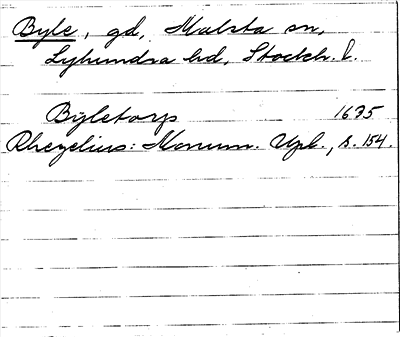 Byle, gd, Malsta sn,
Lyhundra hd, Stockh. l.
Byletorp 1635
Rhezelius: Monum. Upl., s. 154.